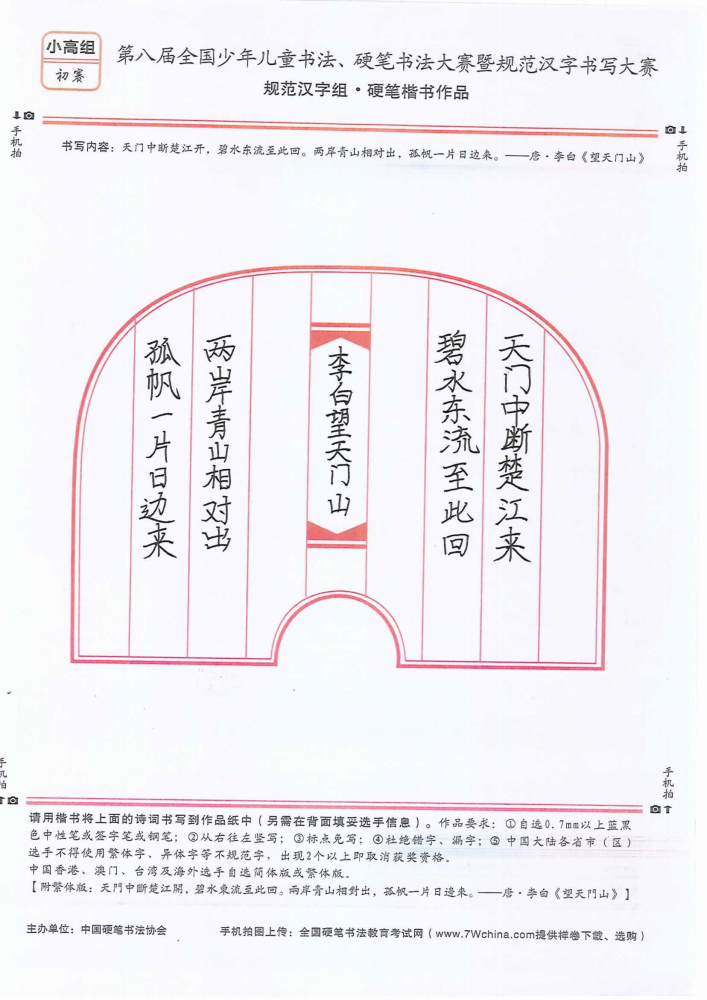 小高组
初赛
第八届全国少年儿童书法、硬笔书法大赛暨规范汉字书写大赛
规范汉字组·硬笔楷书作品
手机拍
手机拍
书写内容：天门中断楚江开，碧水东流至此回。两岸青山相对出，孤帆一片日边来。——唐·李白《望天门山》
天门中断楚江来
碧水东流至此回
李白望天门山
两岸青山相对出
孤帆一片日边来
手机拍
手机拍
请用楷书将上面的诗词书写到作品纸中（另需在背面填妥选手信息）。作品要求：①自选0.7mm以上蓝黑
色中性笔或签字笔或钢笔；②从右往左竖写；③标点免写；④杜绝错字、漏字；⑤中国大陆各省市（区）
选手不得使用繁体字、异体字等不规范字，出现2个以上即取消获奖资格。
中国香港、澳门、台湾及海外选手自选简体版或繁体版。
【附繁体版：天門中斷楚江開，碧水東流至此回。兩岸青山相對出，孤帆一片日邊來。——唐·李白《望天門山》】
主办单位：中国硬笔书法协会
手机拍图上传：全国硬笔书法教育考试网（www.7Wchina.com提供样卷下载、选购）